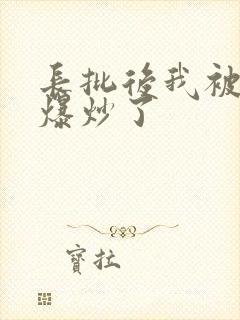 長批後我被
爆炒了
寶拉